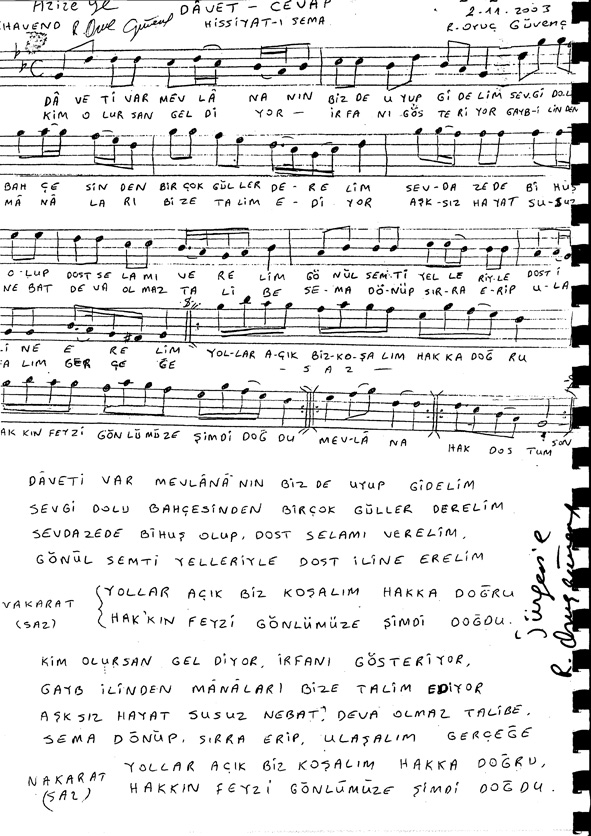 Azize ye DÂVET – CEVAP 2.11.2003
HAVEND R. Oruç Güvenç HİSSİYAT-I SEMA R. ORUÇ GÜVENÇ
DÂ VE Tİ VAR MEV LÂ NA NIN BİZ DE U YUP Gİ DE LİM SEV.Gİ DO.LU
KİM O LUR SAN GEL Dİ YOR – İR FA NI GÖS TE Rİ YOR GAYB-İ LİN DEN
BAH ÇE SİN DEN BİR ÇOK GÜL LER DE - RE LİM SEV-DA ZE DE Bİ HUŞ
MÂ NÂ LA RI Bİ ZE TA LİM E - Dİ YOR AŞK-SIZ HA YAT SU-SUZ
O - LUP DOST SE LA MI VE RE LİM GÖ NÜL SEM.Tİ YEL LE RİY.LE DOST İ
NE BAT DE VA OL MAZ TA Lİ BE SE - MA DÖ-NÜP SIR-RA E-RİP U-LA
Lİ NE E RE LİM YOL-LAR A-ÇIK BİZ-KO-ŞA LIM HAK KA DOĞ RU
ŞA LIM GER ÇE ĞE – S A Z –
HAK KIN FEYZİ GÖNLÜMÜZE ŞİMDİ DOĞ DU MEV-LÂ NA HAK DOS TUM SON
DÂVETİ VAR MEVLÂNÂ'NIN BİZ DE UYUP GİDELİM
SEVGİ DOLU BAHÇESİNDEN BİRÇOK GÜLLER DERELİM
SEVDAZEDE BİHUŞ OLUP, DOST SELAMI VERELİM,
GÖNÜL SEMTİ YELLERİYLE DOST İLİNE ERELİM
YOLLAR AÇIK BİZ KOŞALIM HAKKA DOĞRU
VAKARAT
(SAZ) HAK'KIN FEYZİ GÖNLÜMÜZE ŞİMDİ DOĞDU.
KİM OLURSAN GEL DİYOR, İRFANI GÖSTERİYOR,
GAYB İLİNDEN MÂNÂLARI BİZE TALİM EDİYOR
AŞKSIZ HAYAT SUSUZ NEBAT, DEVA OLMAZ TALİBE,
SEMA DÖNÜP, SIRRA ERİP, ULAŞALIM GERÇEĞE
YOLLAR AÇIK BİZ KOŞALIM HAKKA DOĞRU,
NAKARAT
(SAZ) HAKKIN FEYZİ GÖNLÜMÜZE ŞİMDİ DOĞDU.
R. Oruç Güvenç